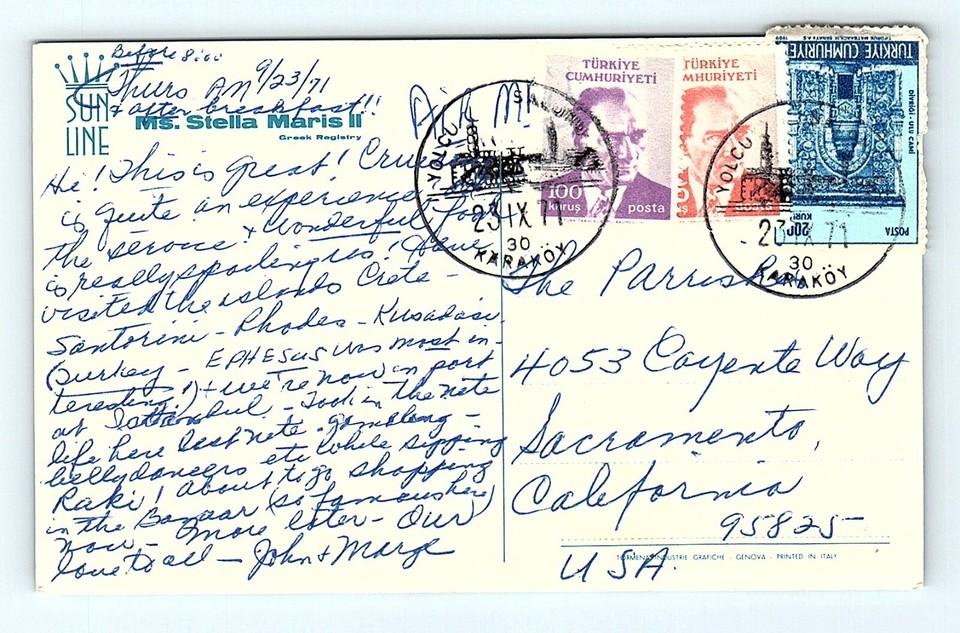 Before 8:00
Thurs AM 9/23/71
& after breakfast!!
SUN
LINE
Ms. Stella Maris II
Greek Registry
Air M
Hi! This is great! Cruise
is quite an experience
the service & wonderful food
is really spoiling us! Have
visited the islands Crete -
Santorini - Rhodes - Kusadasi
(Turkey - EPHESUS was most in-
teresting!) & we're now in port
at Istanbul - Took in the nite
life here last nite - gambling -
bellydancers etc while sipping
Raki! About to go shopping
in the Bazaar (so famous here)
now - more later - Our
love to all - John & Marge
TÜRKİYE
CUMHURİYETİ
100
kuruş
posta
TÜRKİYE
MHURİYETİ
TÜRKİYE CUMHURİYE
POSTA
200
KURU
YOLCU
SALONU
23 IX 71
30
KARAKÖY
YOLCU
23 IX 71
30
KARAKÖY
The Parrish
4053 Cayente Way
Sacramento,
California
95825
USA.
INDUSTRIE GRAFICHE - GENOVA - PRINTED IN ITALY